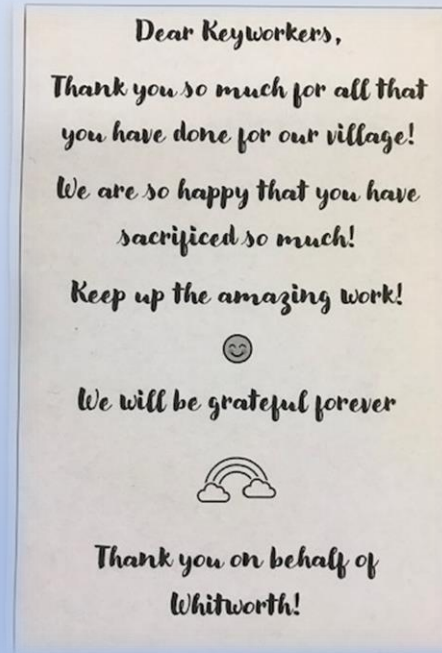 Dear Keyworkers,
Thank you so much for all that
you have done for our village!
We are so happy that you have
sacrificed so much!
Keep up the amazing work!
We will be grateful forever
Thank you on behalf of
Whitworth!